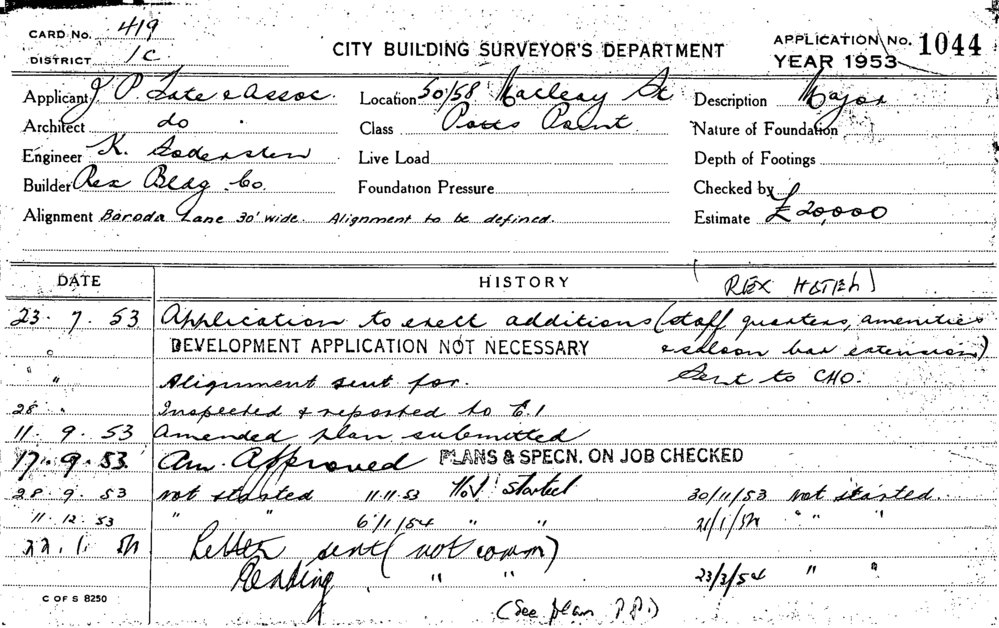 CARD No. 419
DISTRICT 1C
CITY BUILDING SURVEYOR'S DEPARTMENT
APPLICATION No. 1044
YEAR 1953
Applicant J P. Tate & Assoc.
Architect do
Engineer K.
Builder Rex Bldg. Co.
Alignment Baroda Lane 30' wide. Alignment to be defined.
Location 50/58 Macleay St
Class Potts Point
Live Load
Foundation Pressure
Description Major
Nature of Foundation
Depth of Footings
Checked by
Estimate £20,000
DATE HISTORY (REX HOTEL)
23. 7. 53 Application to erect additions (staff quarters, amenities
" DEVELOPMENT APPLICATION NOT NECESSARY & saloon bar extension)
" Alignment sent for. Sent to CHO.
28 " Inspected & reported to E.1
11. 9. 53 Amended plan submitted
17. 9. 53. Am. Approved PLANS & SPECN. ON JOB CHECKED
28. 9. 53 not started 11.11.53 Not started 30/11/53 Not started.
11. 12. 53 " " 6/1/54 " " 21/1/54 " "
22. 1. 54 Letter sent (not comm)
Pending " " 23/3/54 " "
(See plan P.P.)
C OF S 8250